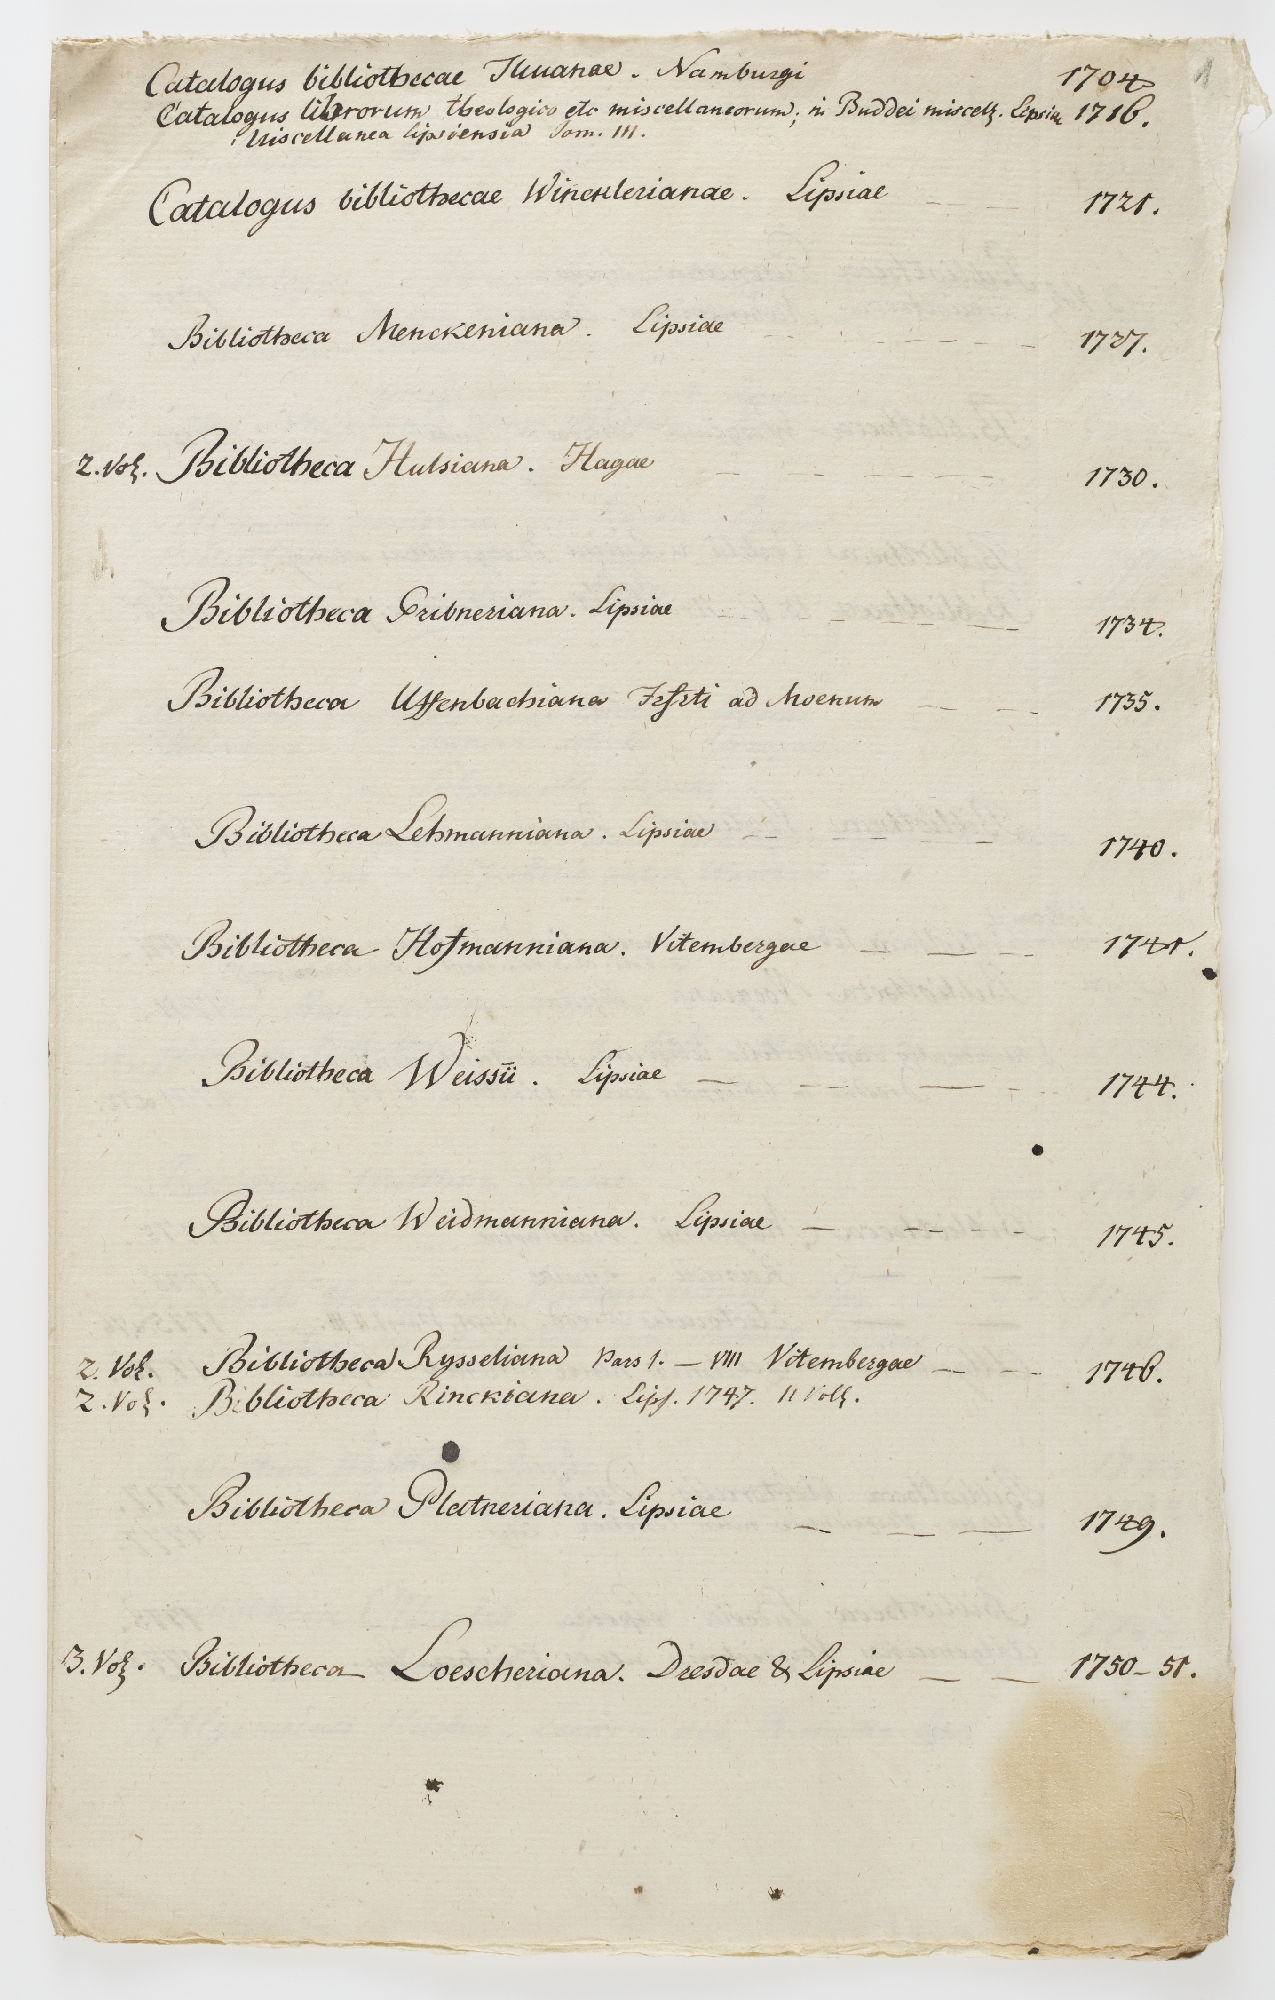 1
Catalogus bibliothecae Thuanae. Namburgi 1704
Catalogus librorum theologico etc miscellaneorum; in Buddei miscell. Lipsiae 1716.
Miscellanea lipsiensia Tom. III.
Catalogus bibliothecae Wincklerianae. Lipsiae — — 1721.
Bibliotheca Menckeniana. Lipsiae — — — — — 1727.
2. Vol. Bibliotheca Hulsiana. Hagae — — — — — 1730.
Bibliotheca Gribneriana. Lipsiae — — — — — 1734.
Bibliotheca Uffenbachiana Fcfrti ad Moenum — — 1735.
Bibliotheca Lehmanniana. Lipsiae — — — — 1740.
Bibliotheca Hofmanniana. Vitembergae — — — 1741.
Bibliotheca Weissii. Lipsiae — — — — 1744.
Bibliotheca Weidmanniana. Lipsiae — — — — 1745.
2. Vol. Bibliotheca Rysseliana Pars I. — VIII Vitembergae — — — 1746.
2. Vol. Bibliotheca Rinckiana. Lips. 1747. II Voll.
Bibliotheca Platneriana. Lipsiae — — — 1749.
3. Vol. Bibliotheca Loescheriana. Dresdae & Lipsiae — — 1750–51.